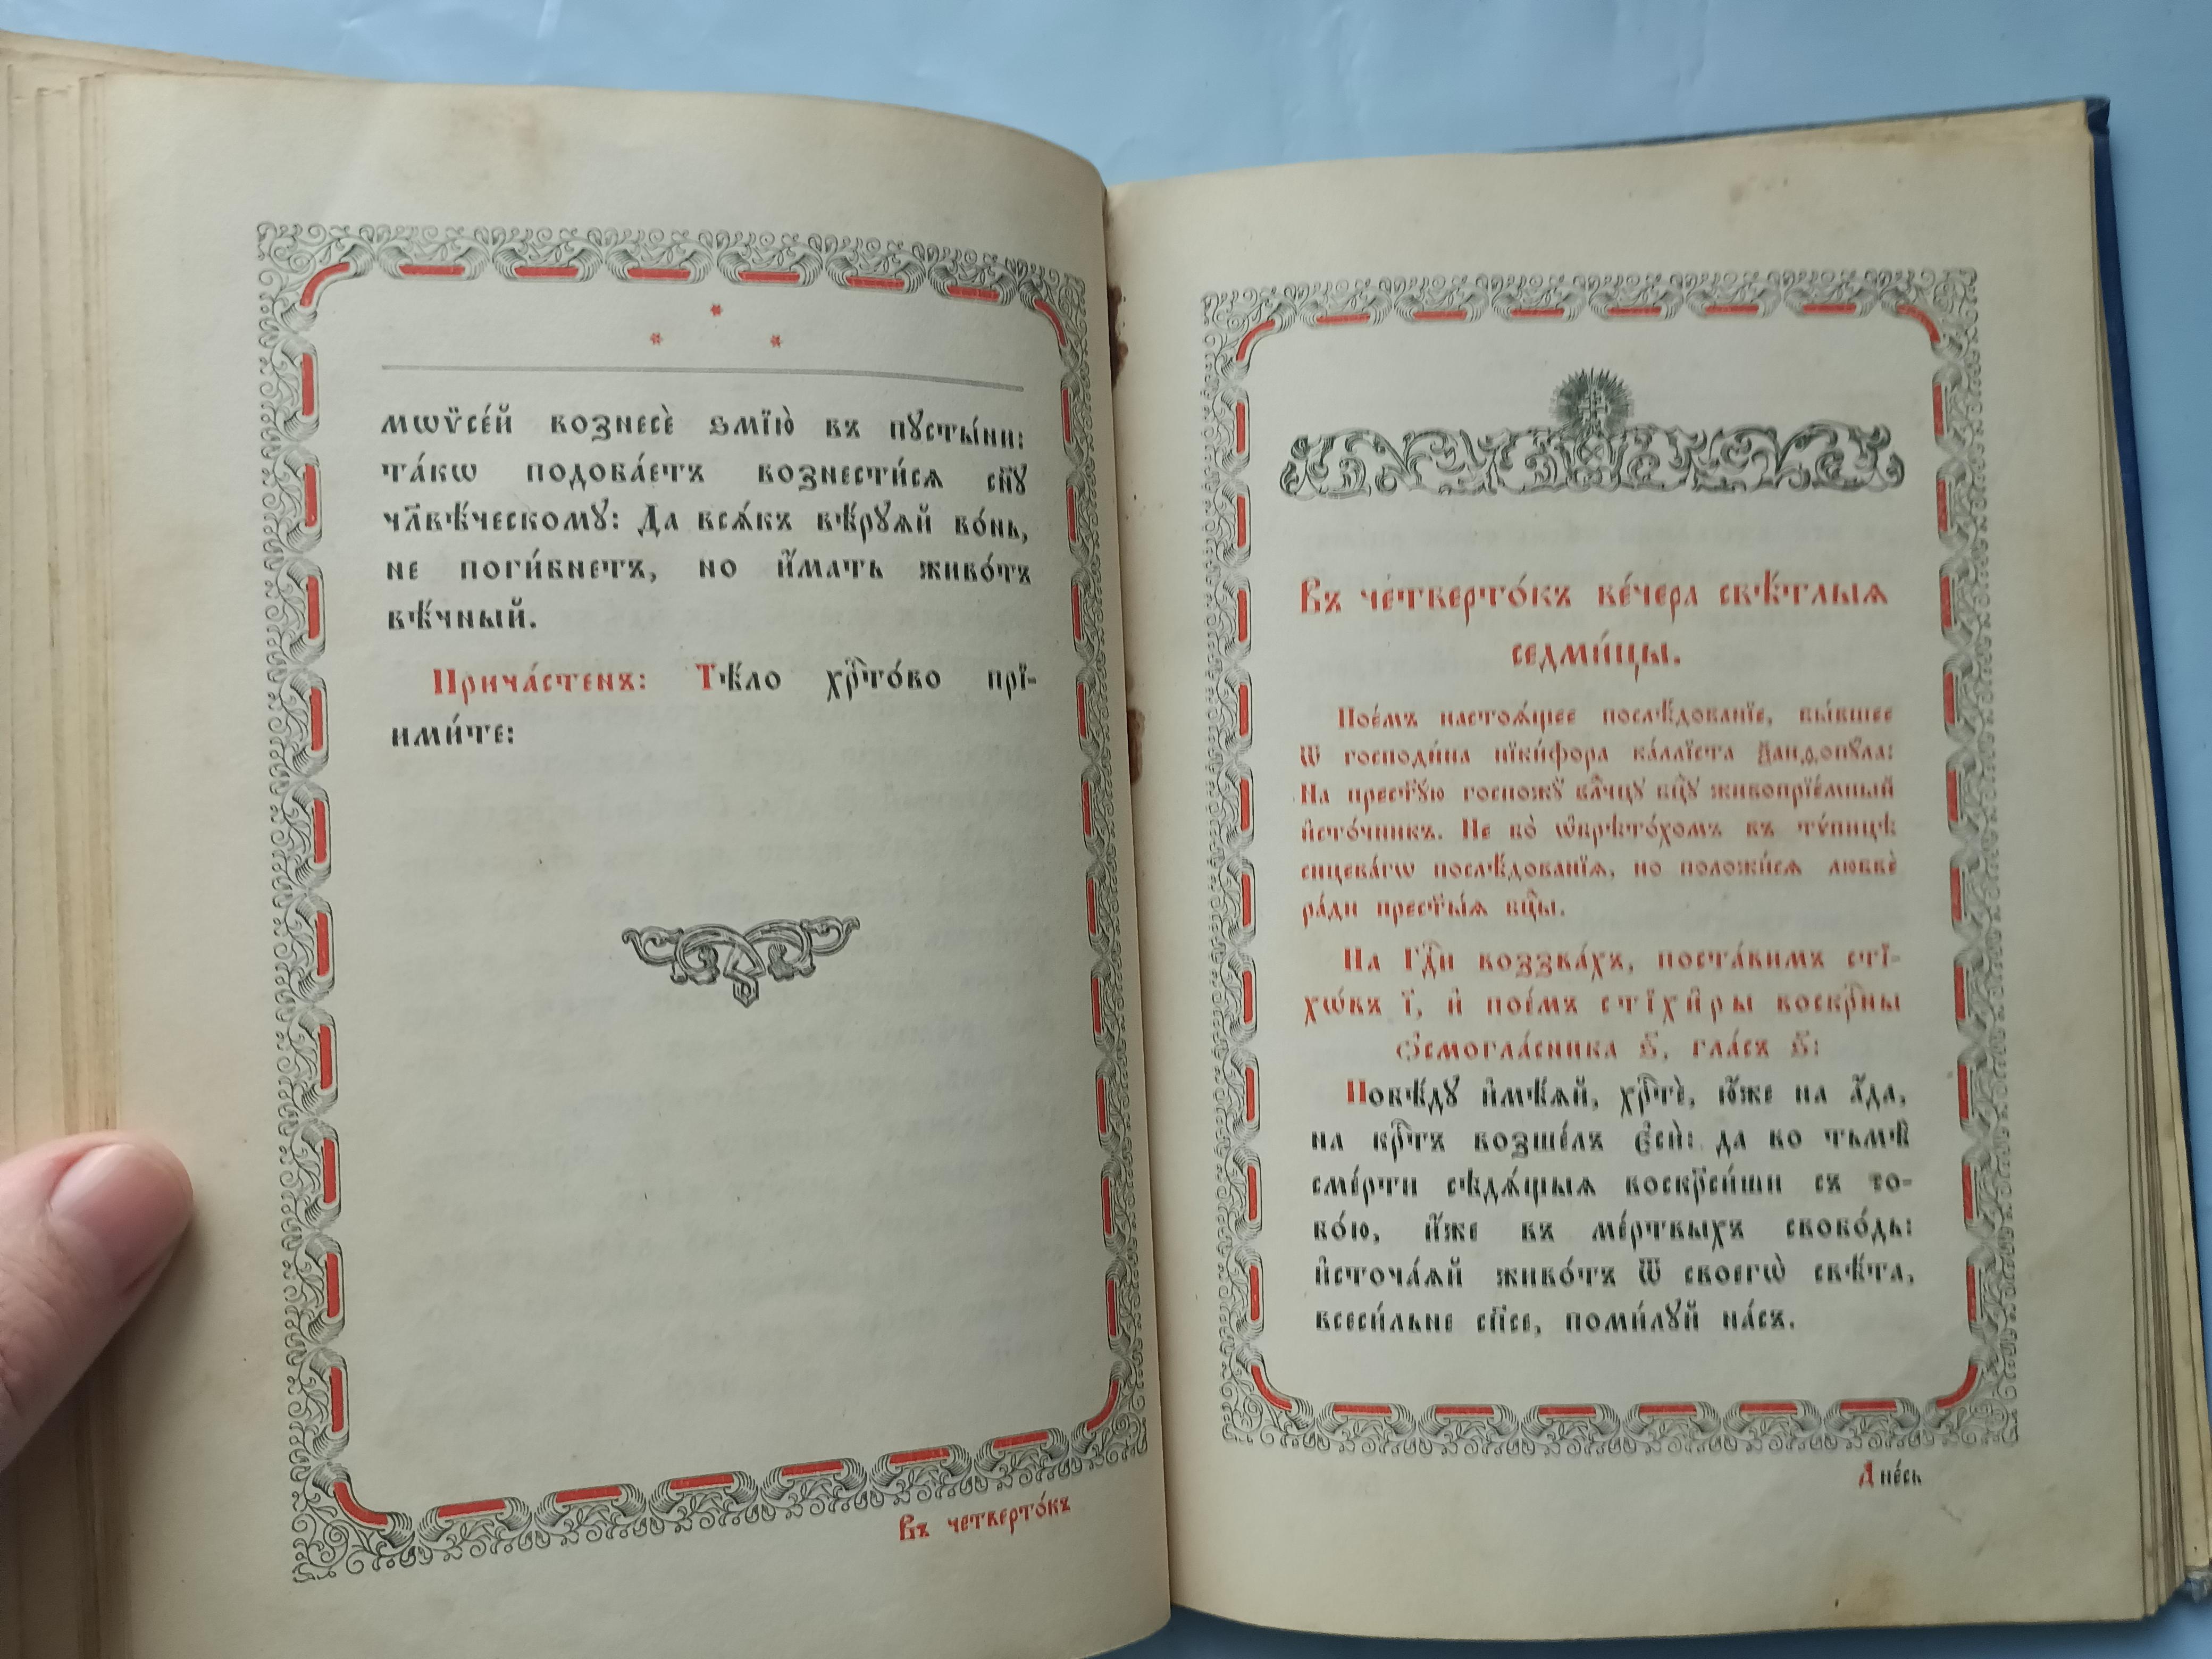 мѡѷсе́й вознесѐ ѕмїю̀ въ пꙋсты́ни:
та́кѡ подоба́етъ вознести́сѧ сн҃ꙋ
чл҃вѣ́ческомꙋ: Да всѧ́къ вѣ́рꙋѧй во́нь,
не поги́бнетъ, но и҆́мать живо́тъ
вѣ́чный.
Прича́стенъ: Тѣ́ло хрⷭ҇то́во прї-
ими́те:
Въ четверто́къ
Въ четверто́къ ве́чера свѣ́тлыѧ
седми́цы.
Пое́мъ настоѧ́щее послѣ́дованїе, бы́вшее
ѿ господи́на нїки́фора ка́ллїста ѯандопꙋ́ла:
На прест҃ꙋ́ю госпожꙋ̀ влⷣчцꙋ бцⷣꙋ живопрїе́мный
и҆сто́чникъ. Не бо̀ ѡ҆брѣто́хомъ въ тѵ́пицѣ
сицева́гѡ послѣ́дованїѧ, но положи́сѧ любвѐ
ра́ди прест҃ы́ѧ бцⷣы.
На Гдⷭ҇и воззва́хъ, поста́вимъ стї-
хѡ́въ ї҃, и҆ пое́мъ стїхи̑ры воскрⷭ҇ны
Ѻ҆смогла́сника ѕ҃, гла́съ ѕ҃:
Побѣ́дꙋ и҆мѣ́ѧй, хрⷭ҇тѐ, ю҆́же на а҆́да,
на крⷭ҇тъ возше́лъ є҆сѝ: да во тьмѣ̀
сме́рти сѣдѧ́щыѧ воскр҃си́ши съ то-
бо́ю, и҆́же въ ме́ртвыхъ свобо́дь:
и҆сточа́ѧй живо́тъ ѿ своегѡ̀ свѣ́та,
всеси́льне сп҃се, поми́лꙋй на́съ.
Дне́сь